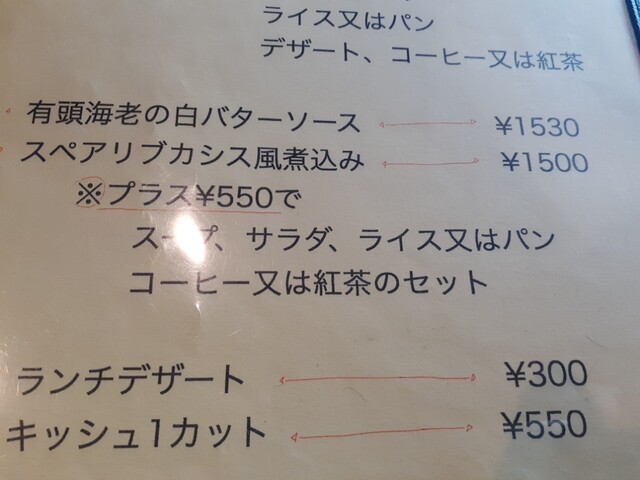 ライス又はパン
デザート、コーヒー又は紅茶
有頭海老の白バターソース ¥1530
スペアリブカシス風煮込み ¥1500
※プラス¥550で
スープ、サラダ、ライス又はパン
コーヒー又は紅茶のセット
ランチデザート ¥300
キッシュ1カット ¥550